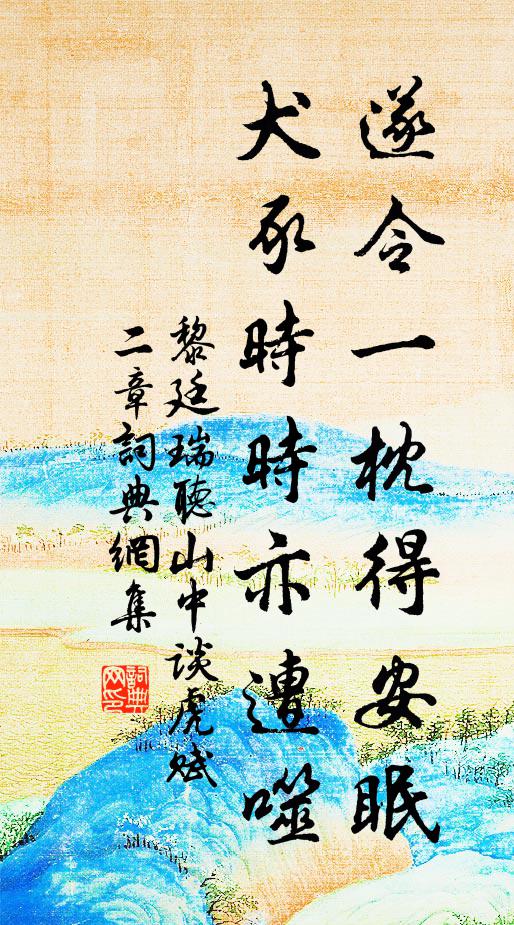 遂令一枕得安眠
犬豕時時亦遭噬
黎廷瑞聽山中談虎賦
二章詞典網集
詞典
网印